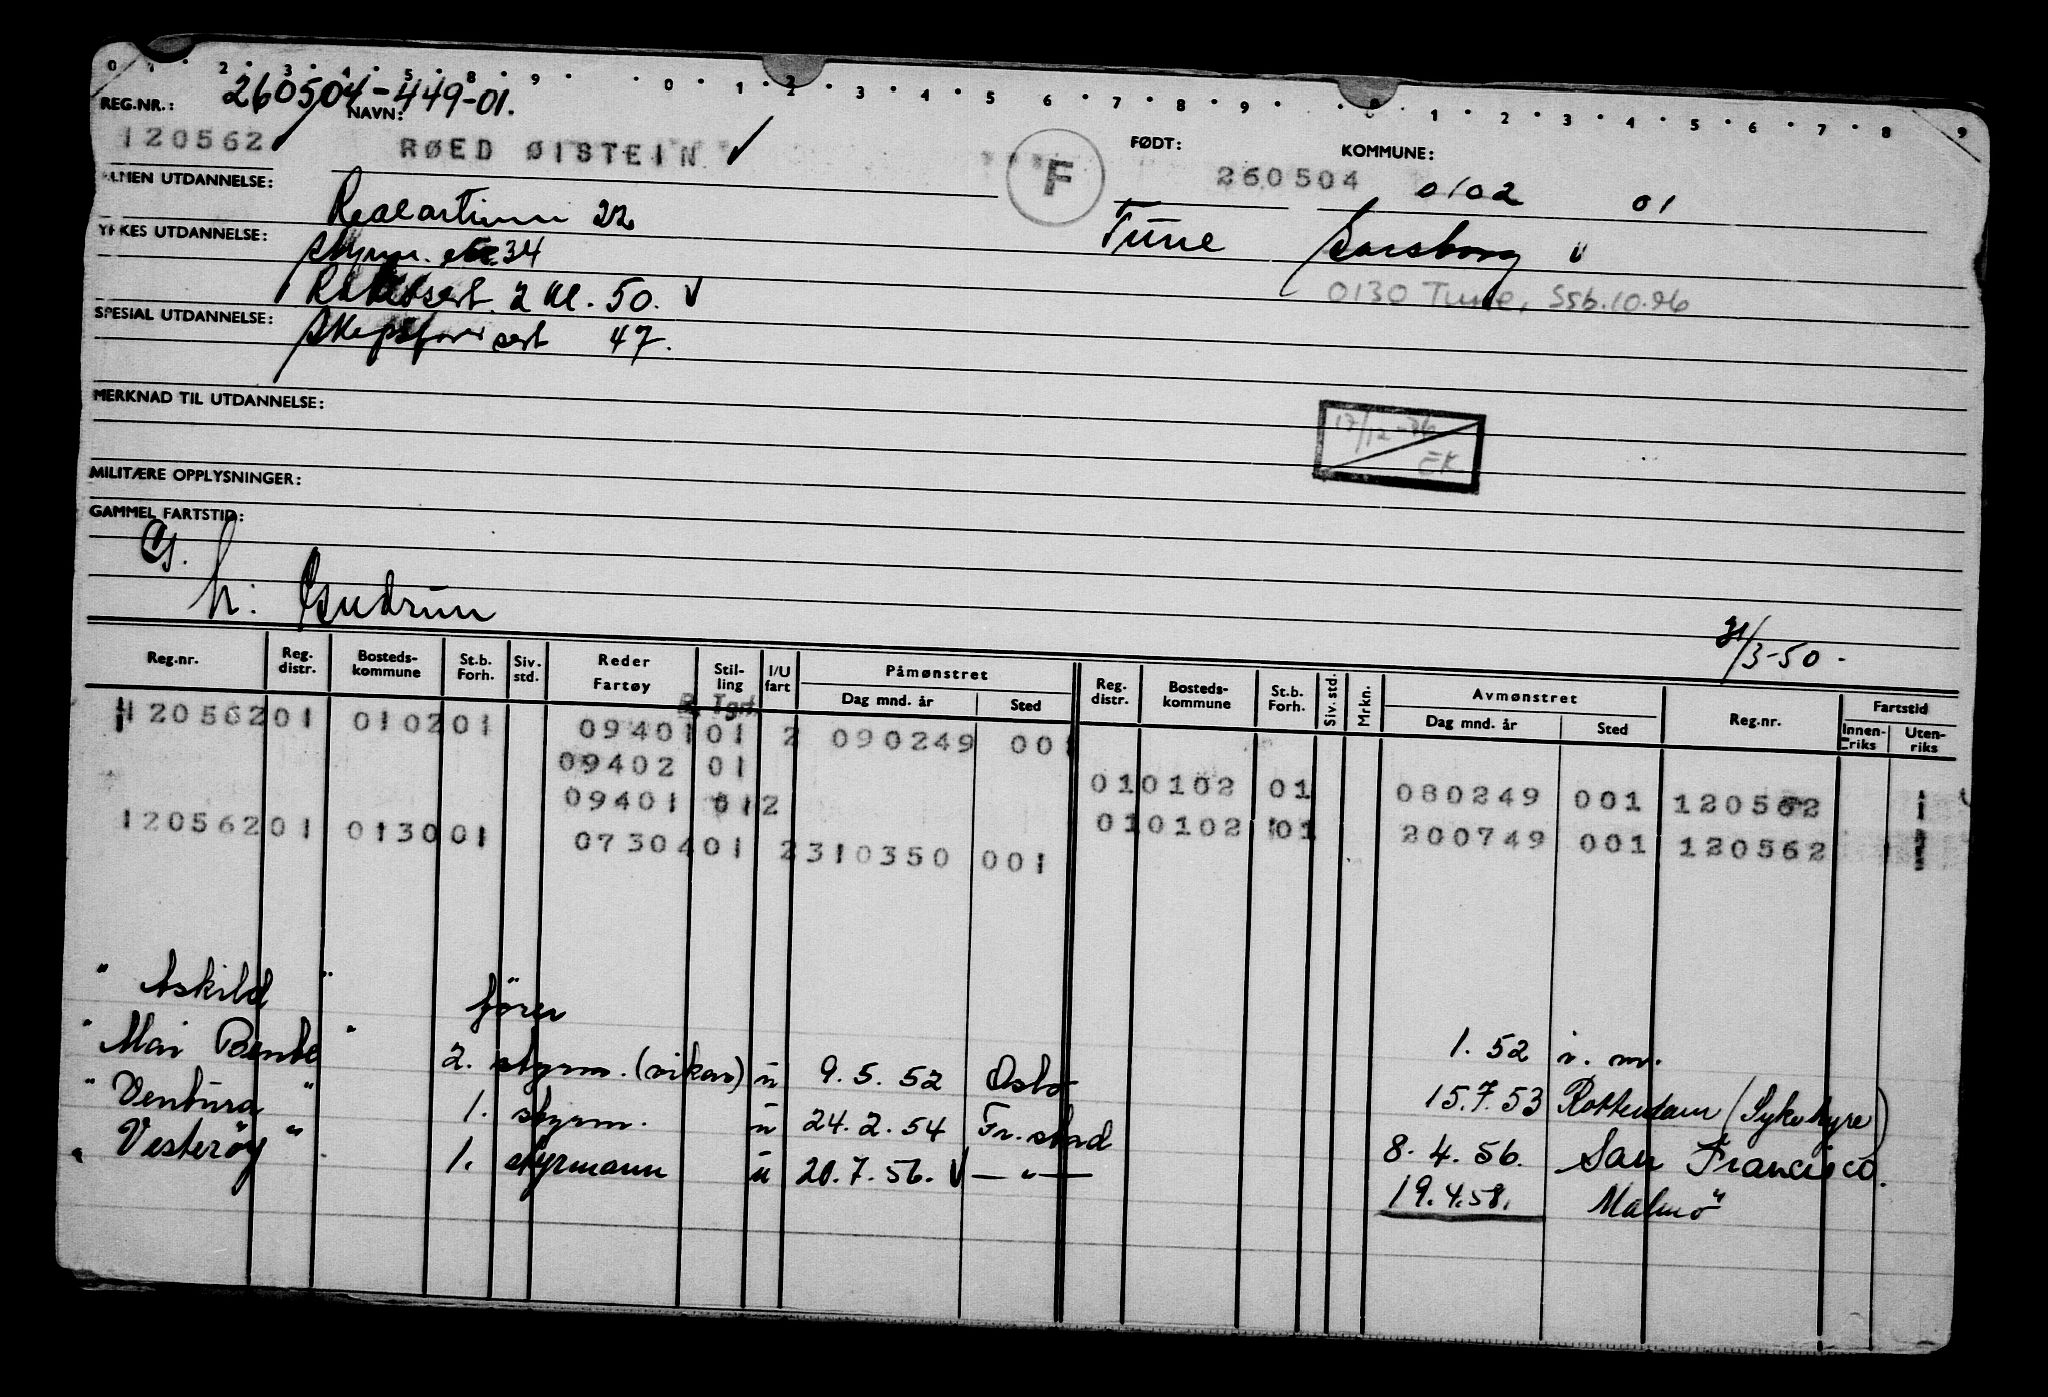 0 1 2 3 4 5 8 9 0 1 2 3 4 5 6 7 8 9 0 1 2 3 4 5 6 7 8 9
REG.NR.: 260504-449-01. NAVN: FØDT: KOMMUNE:
120562 RØED ØISTEIN ✓ F 260504 0102 01
ALMEN UTDANNELSE: Realartium 22 Tune Sarsborg ✓
YRKES UTDANNELSE: styrm. 34
sert. 2 kl. 50. ✓ 0130 Tune, Ssb.10.96
SPESIAL UTDANNELSE: skipsfør sert 47.
MERKNAD TIL UTDANNELSE:
17/12-76 EK
MILITÆRE OPPLYSNINGER:
GAMMEL FARTSTID:
G.
h: Gudrun 31/3-50.
Reg.nr. Reg. distr. Bosteds-kommune St.b. Forh. Siv. std. Reder Fartøy Stil-ling I/U fart Påmønstret Dag mnd. år Sted Reg. distr. Bosteds-kommune St.b. Forh. Siv. std. Mrkn. Avmønstret Dag mnd. år Sted Reg.nr. Fartstid Innen-riks Uten-riks
120562 01 0102 01 09401 01 2 090249 001
09402 01 01 0102 01 080249 001 120562 1
09401 01 2 01 0102 01 200749 001 120562 1
120562 01 0130 01 07304 01 2 310350 001
" Askild " fører 1. 52
" Mai Bente " 2. styrm. (vikar) u 9. 5. 52 Oslo 15.7.53 Rotterdam (Sykehyre)
" Ventura " 1. styrm. u 24. 2. 54 Fr.stad 8. 4. 56. San Francisco.
" Vesterøy " 1. styrmann u 20. 7. 56. ✓ — " — 19.4.58. Malmö